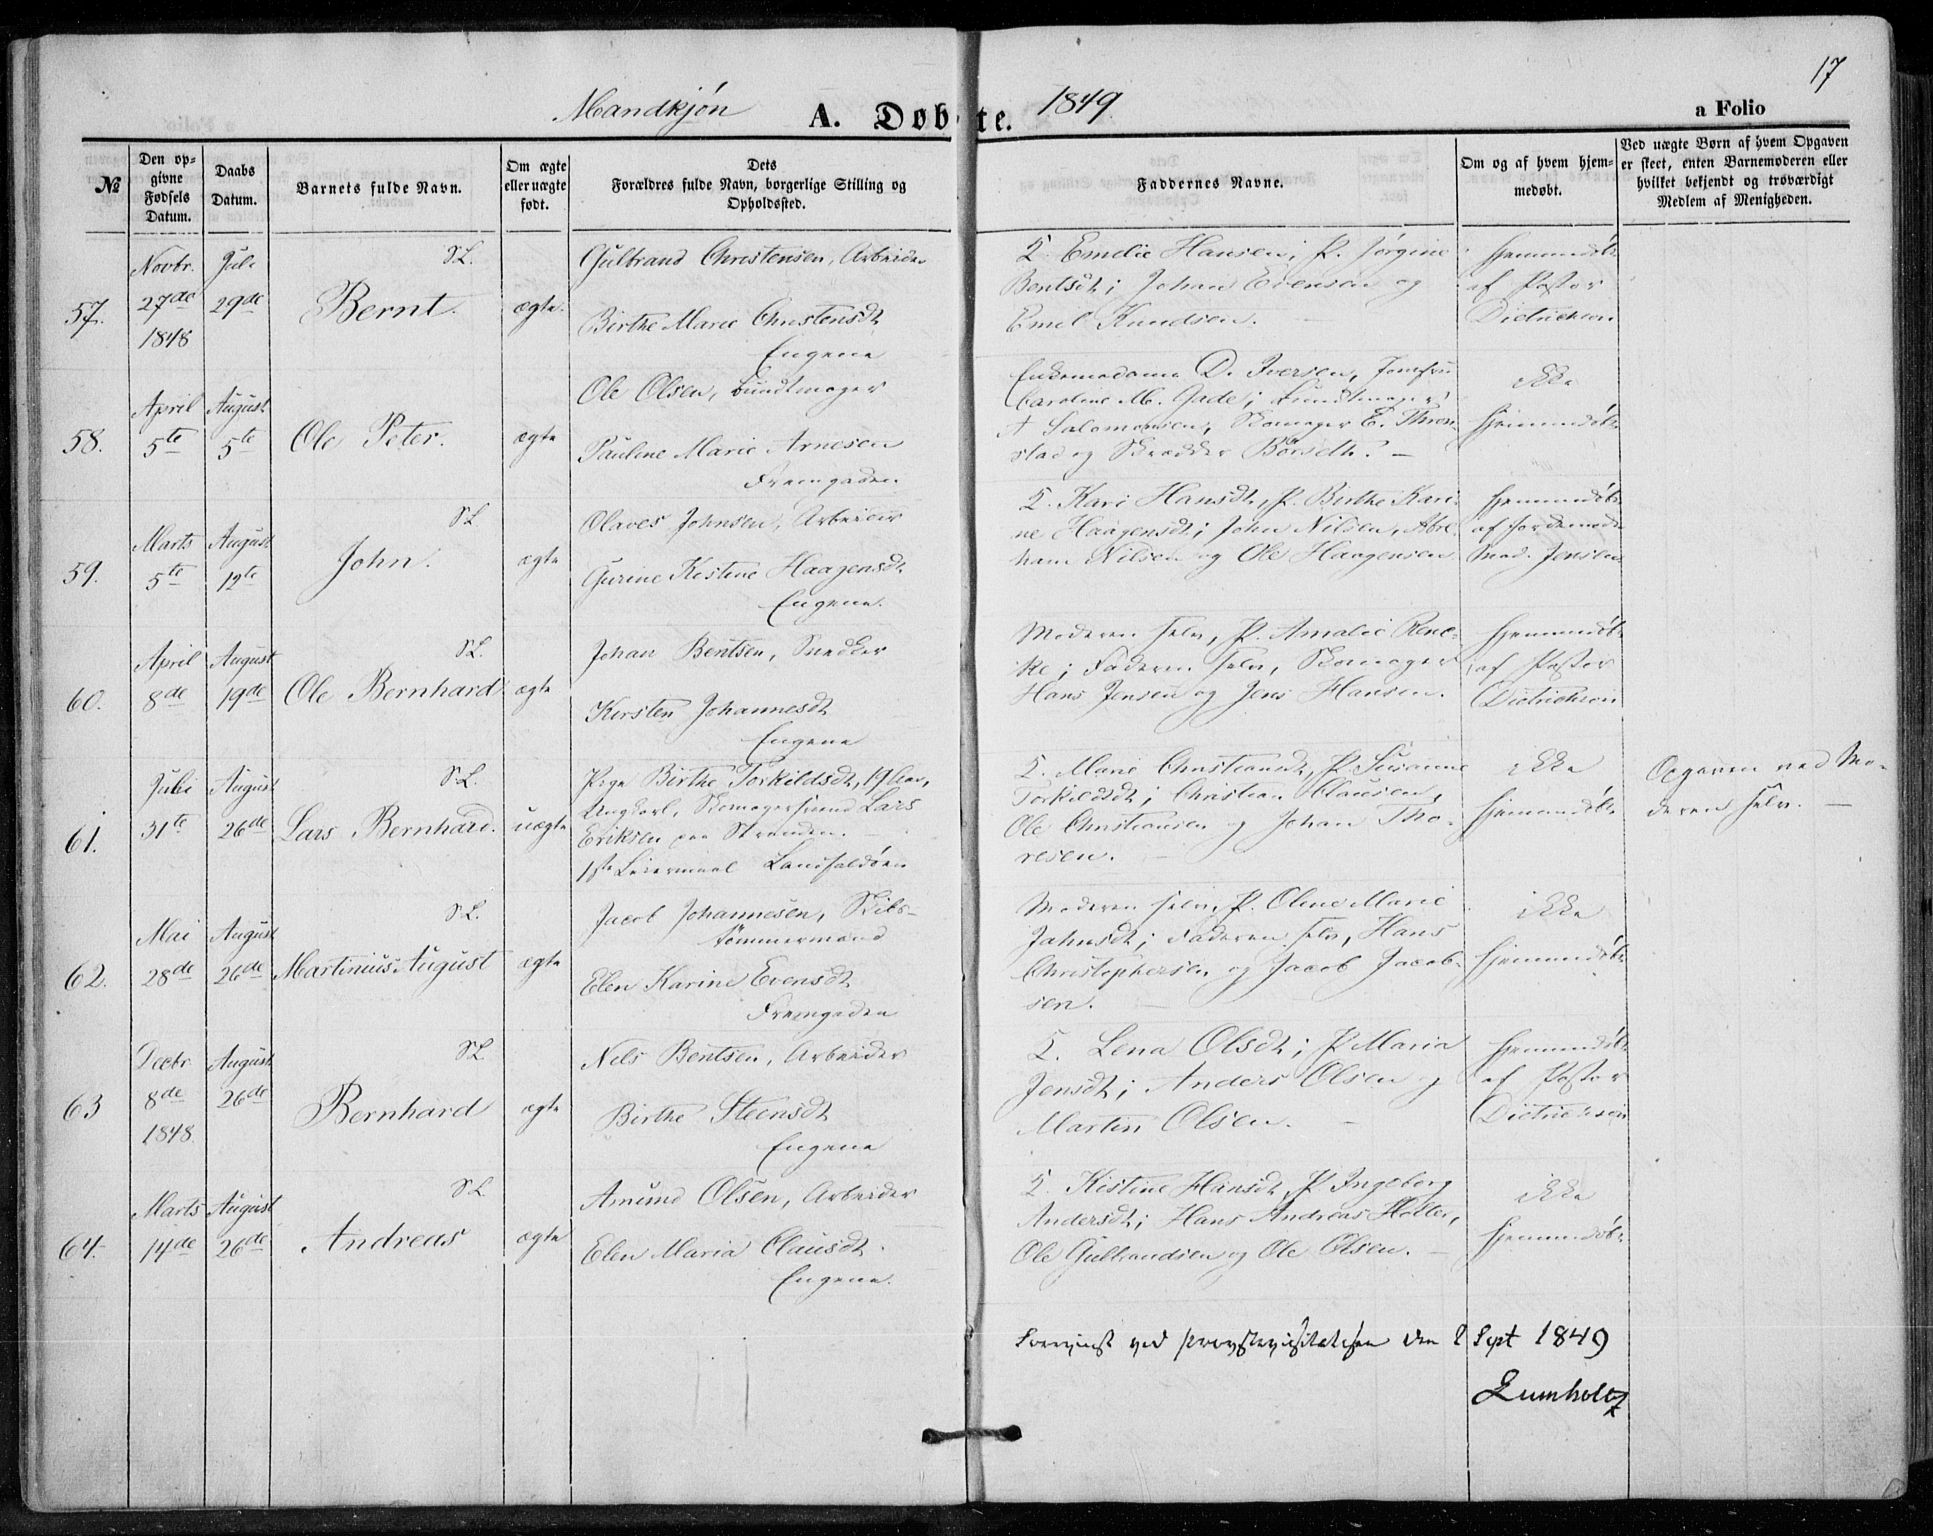 17
Mandkjøn A. Døbte. 1849. a Folio
№
Den op-
givne
Fødsels
Datum.
Daabs
Datum.
Barnets fulde Navn.
Om ægte
eller uægte
født.
Dets
Forældres fulde Navn, borgerlige Stilling og
Opholdssted.
Faddernes Navne.
Om og af hvem hjem-
medøbt.
Ved uægte Børn af hvem Opgaven
er skeet, enten Barnemoderen eller
hvilket bekjendt og troværdigt
Medlem af Menigheden.
57.
Novbr.
27de
1848
Juli
29de
S.L.
Bernt.
ægte.
Gulbrand Christensen, Arbeider
Birthe Marie Christensdt.
Engene
Emelie Hansen; P. Jørgine
Bentsdt; Johan Evensen og
Emil Knudsen.
Hjemmedøbt
af Pastor
Dietrichson
58.
April
5te
August
5te
Ole Peter.
ægte
Ole Olsen, Bundtmager
Pauline Marie Arnesen
Fremgaden.
Enkemadame D. Iversen, Jomfru
Caroline M. Gade; Bundtmager
A Salomonsen, Skomager E. Thron-
stad og Skrædder
ikke
Hjemmedøbt
59.
Marts
5te
August
12te
S.L.
John.
ægte
Olaves Johnsen, Arbeider
Gurine Kistine Haagensdt.
Engene.
Kari Hansdt, P. Birthe Kari-
ne Haagensdt; John Nilsen, Abra-
ham Nilsen og Ole Haagensen
Hjemmedøbt
af Jordemoder
Mad. Jensen
60.
April
8de
August
19de
S.L.
Ole Bernhard
ægte
Johan Bentsen, Snedker
Kirsten Johannesdt.
Engene
Moderen selv, P. Amalie
Faderen selv, Skomager
Hans Jensen og Jens Hansen.
Hjemmedøbt
af Pastor
Dietrichson
61.
Juli
31te
August
26de
S.L.
Lars Bernhard.
uægte
Pige Birthe Torkildsdt, 19 Aar,
Ungkarl, Skomagersvend Lars
Eriksen paa Stranden.
1ste Leiermaal Landfaldøen
Marie Christiansdt, P. Susanne
Torkildsdt; Christian Clausen,
Ole Christiansen og Johan Tho-
resen.
ikke
Hjemmedøbt
Opgaven ved Mo-
deren selv.
62.
Mai
28de
August
26de
S.L.
Martinius August
ægte
Jacob Johannesen, Skibs-
tømmermand
Elen Karine Evensdt.
Fremgaden
Moderen selv, P. Oline Marie
Jahnsdt; Faderen selv, Hans
Christophersen og Jacob Jacob-
sen.
ikke
Hjemmedøbt
63
Decbr
8de
1848.
August
26de
S.L.
Bernhard
ægte
Nils Bentsen, Arbeider
Birthe Steensdt.
Engene
Lena Olsdt; P Maria
Jensdt; Anders Olsen og
Martin Olsen.
Hjemmedøbt
af Pastor
Dietrichson
64.
Marts
14de
August
26de
S.L.
Andreas
ægte
Amund Olsen, Arbeider
Elen Maria Clausdt.
Engene.
Kistine Hansdt, P. Ingeborg
Andersdt; Hans Andreas Holter,
Ole Gulbrandsen og Ole Olsen.
ikke
Hjemmedøbt
Foreviist ved Provstevisitatsen den 2 Sept 1849
Lumholtz